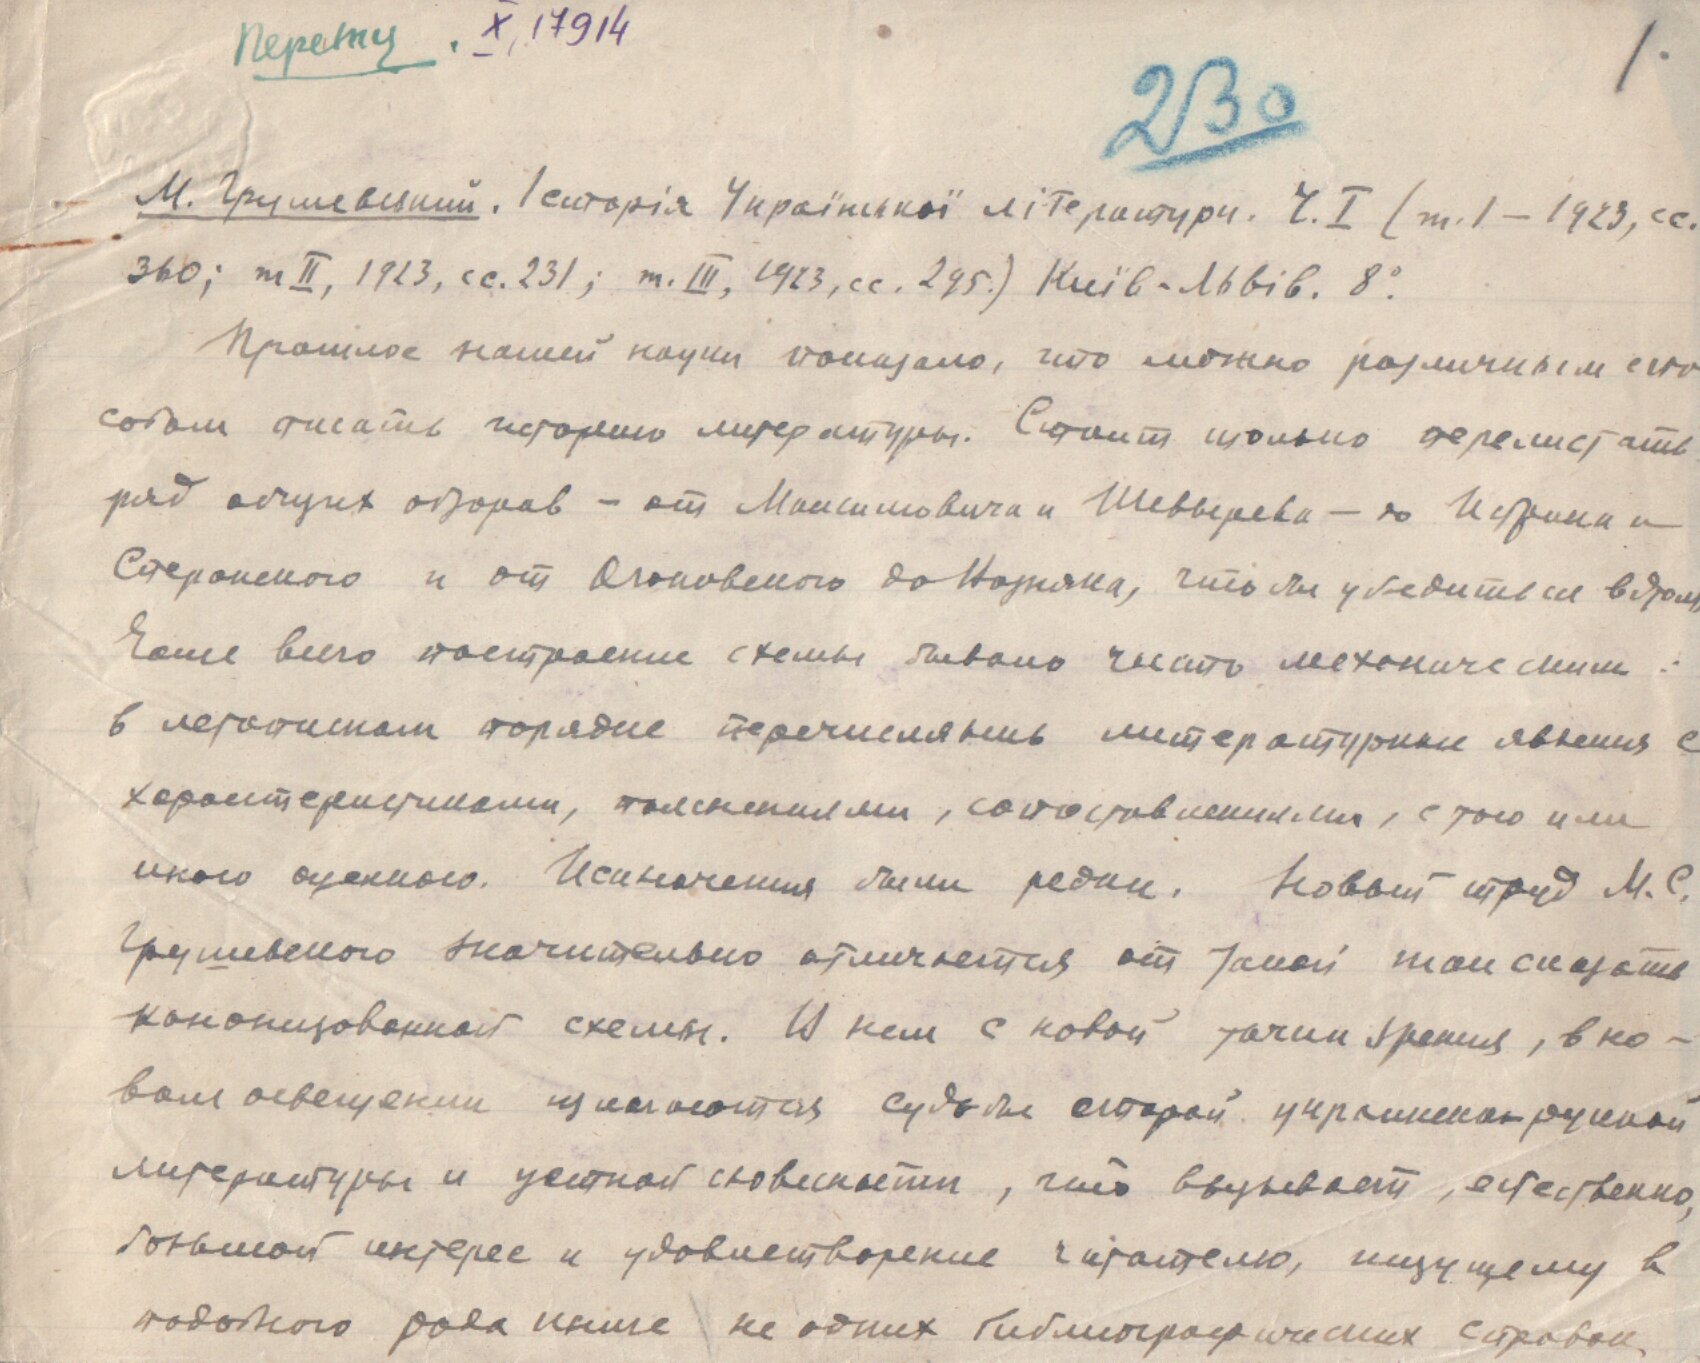 Перетц. X, 17914
230
1.
М. Грушевський. Історія Української літератури. Ч. I (т. I – 1923, сс.
360; т II, 1923, сс. 231; т. III, 1923, сс. 295.) Київ-Львів. 8°.
Прошлое нашей науки показало, что можно различным спо
собом писать историю литературы. Стоит только перелистать
ряд общих обзоров – от Максимовича и Шевырева – до Истрина и
Сперанского и от Огоновского до Возняка, чтобы убедиться в этом
Чаще всего построение схемы бывало чисто механическим:
в летописном порядке перечислялись литературные явления с
характеристиками, пояснениями, сопоставлениями, с тою или
иною оценкою. Исключения были редки. Новый труд М. С.
Грушевского значительно отличается от такой так сказать
канонизованной схемы. В нем с новой точки зрения, в но-
вом освещении излагаются судьбы старой украинско-русской
литературы и устной словесности, что вызывает, естественно,
большой интерес и удовлетворение читателю, ищущему в
подобного рода книге не одних библиографических справок